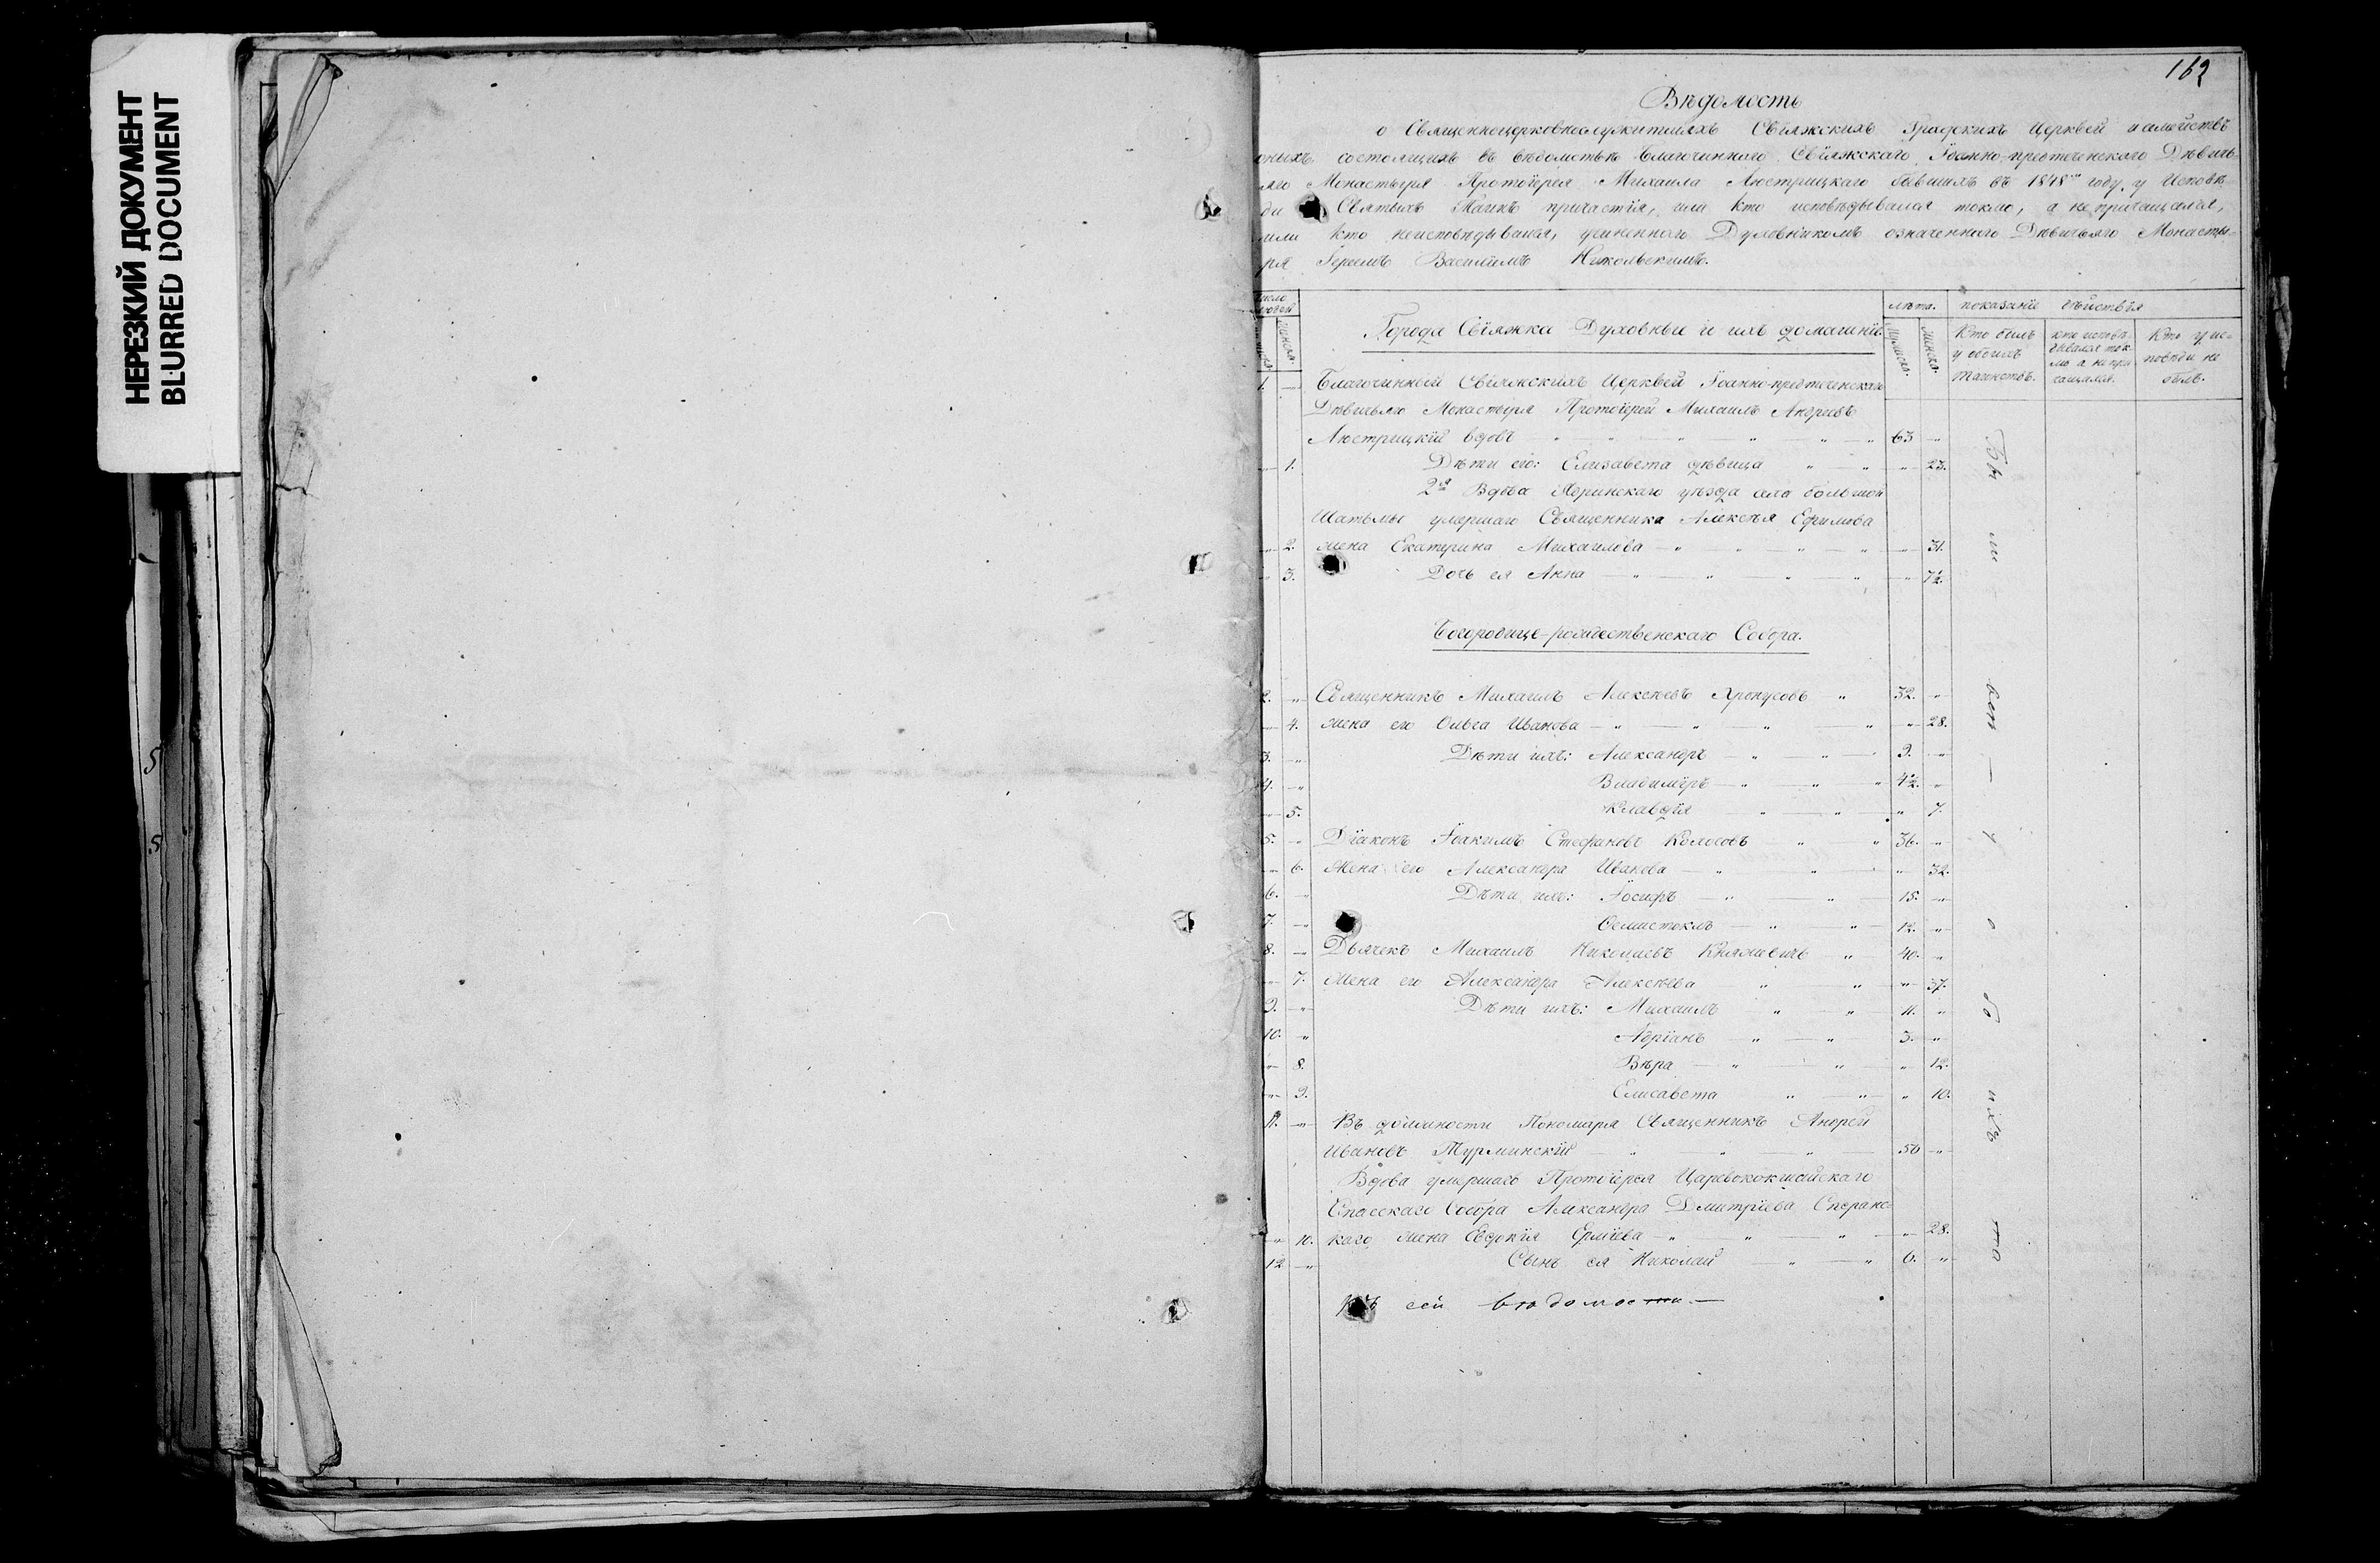 НЕРЕЗКИЙ ДОКУМЕНТ
BLURRED DOCUMENT
5
5
162
Вѣдомость
о Священноцерковнослужителяхъ Свіяжскихъ Градскихъ Церквей и семействъ
оныхъ, состоящихъ въ вѣдомствѣ благочиннаго Свіяжскаго Іоанно-предтеченскаго Дѣвичь-
яго Монастыря Протоіерея Михаила Люстрицкаго бывшихъ въ 1848мъ году у Исповѣ-
ди Святыхъ Таинъ причастія, или кто исповѣдывался токмо, а не причащался,
или кто неисповѣдывался, учиненная Духовникомъ означеннаго Дѣвичьяго Монасты-
ря Іереемъ Василіемъ Никольскимъ.
число людей
лѣта. показаніе дѣйствія
женска.
Города Свіяжска Духовные и ихъ домашніе.
Мужеска. Женска.
Кто былъ у обоихъ таинствъ.
кто исповѣдывался токмо а не причащался.
Кто у исповѣди не былъ.
1. — Благочинный Свіяжскихъ Церквей Іоанно-предтеченскаго
Дѣвичьяго Монастыря Протоіерей Михаилъ Андреевъ
Люстрицкій вдовъ 63
1. Дѣти его: Елизавета дѣвица 23.
2я Вдова Ядринскаго уѣзда села большой
Шатьмы умершаго Священника Алексѣя Ефимова
2. жена Екатерина Михайлова 31.
3. Дочь ея Анна 7½.
Богородице-рождественскаго Собора.
2. Священникъ Михаилъ Алексѣевъ Хропусовъ 32.
4. жена его Ольга Иванова 28.
3. Дѣти ихъ: Александръ 9.
4. Владимиръ 4½.
5. Клавдія 7.
5. Діаконъ Іоакимъ Стефановъ Колосовъ 36.
6. Жена его Александра Иванова 32.
6. Дѣти ихъ: Іосифъ 15.
7. Ѳемистоклъ 12.
8. Дьячекъ Михаилъ Николаевъ Княжевичь 40.
7. Жена его Александра Алексѣева 37.
9. Дѣти ихъ: Михаилъ 11.
10. Адріанъ 3.
8. Вѣра 12.
9. Елисавета 10.
11. Въ должности Пономаря Священникъ Андрей
Ивановъ Турминскій 50
Вдова умершаго Протоіерея Царевококшайскаго
Спасскаго Собора Александра Дмитріева Сперанс-
10. каго жена Евдокія Ермиева 28.
12 Сынъ ея Николай 6.
Къ сей вѣдомости —